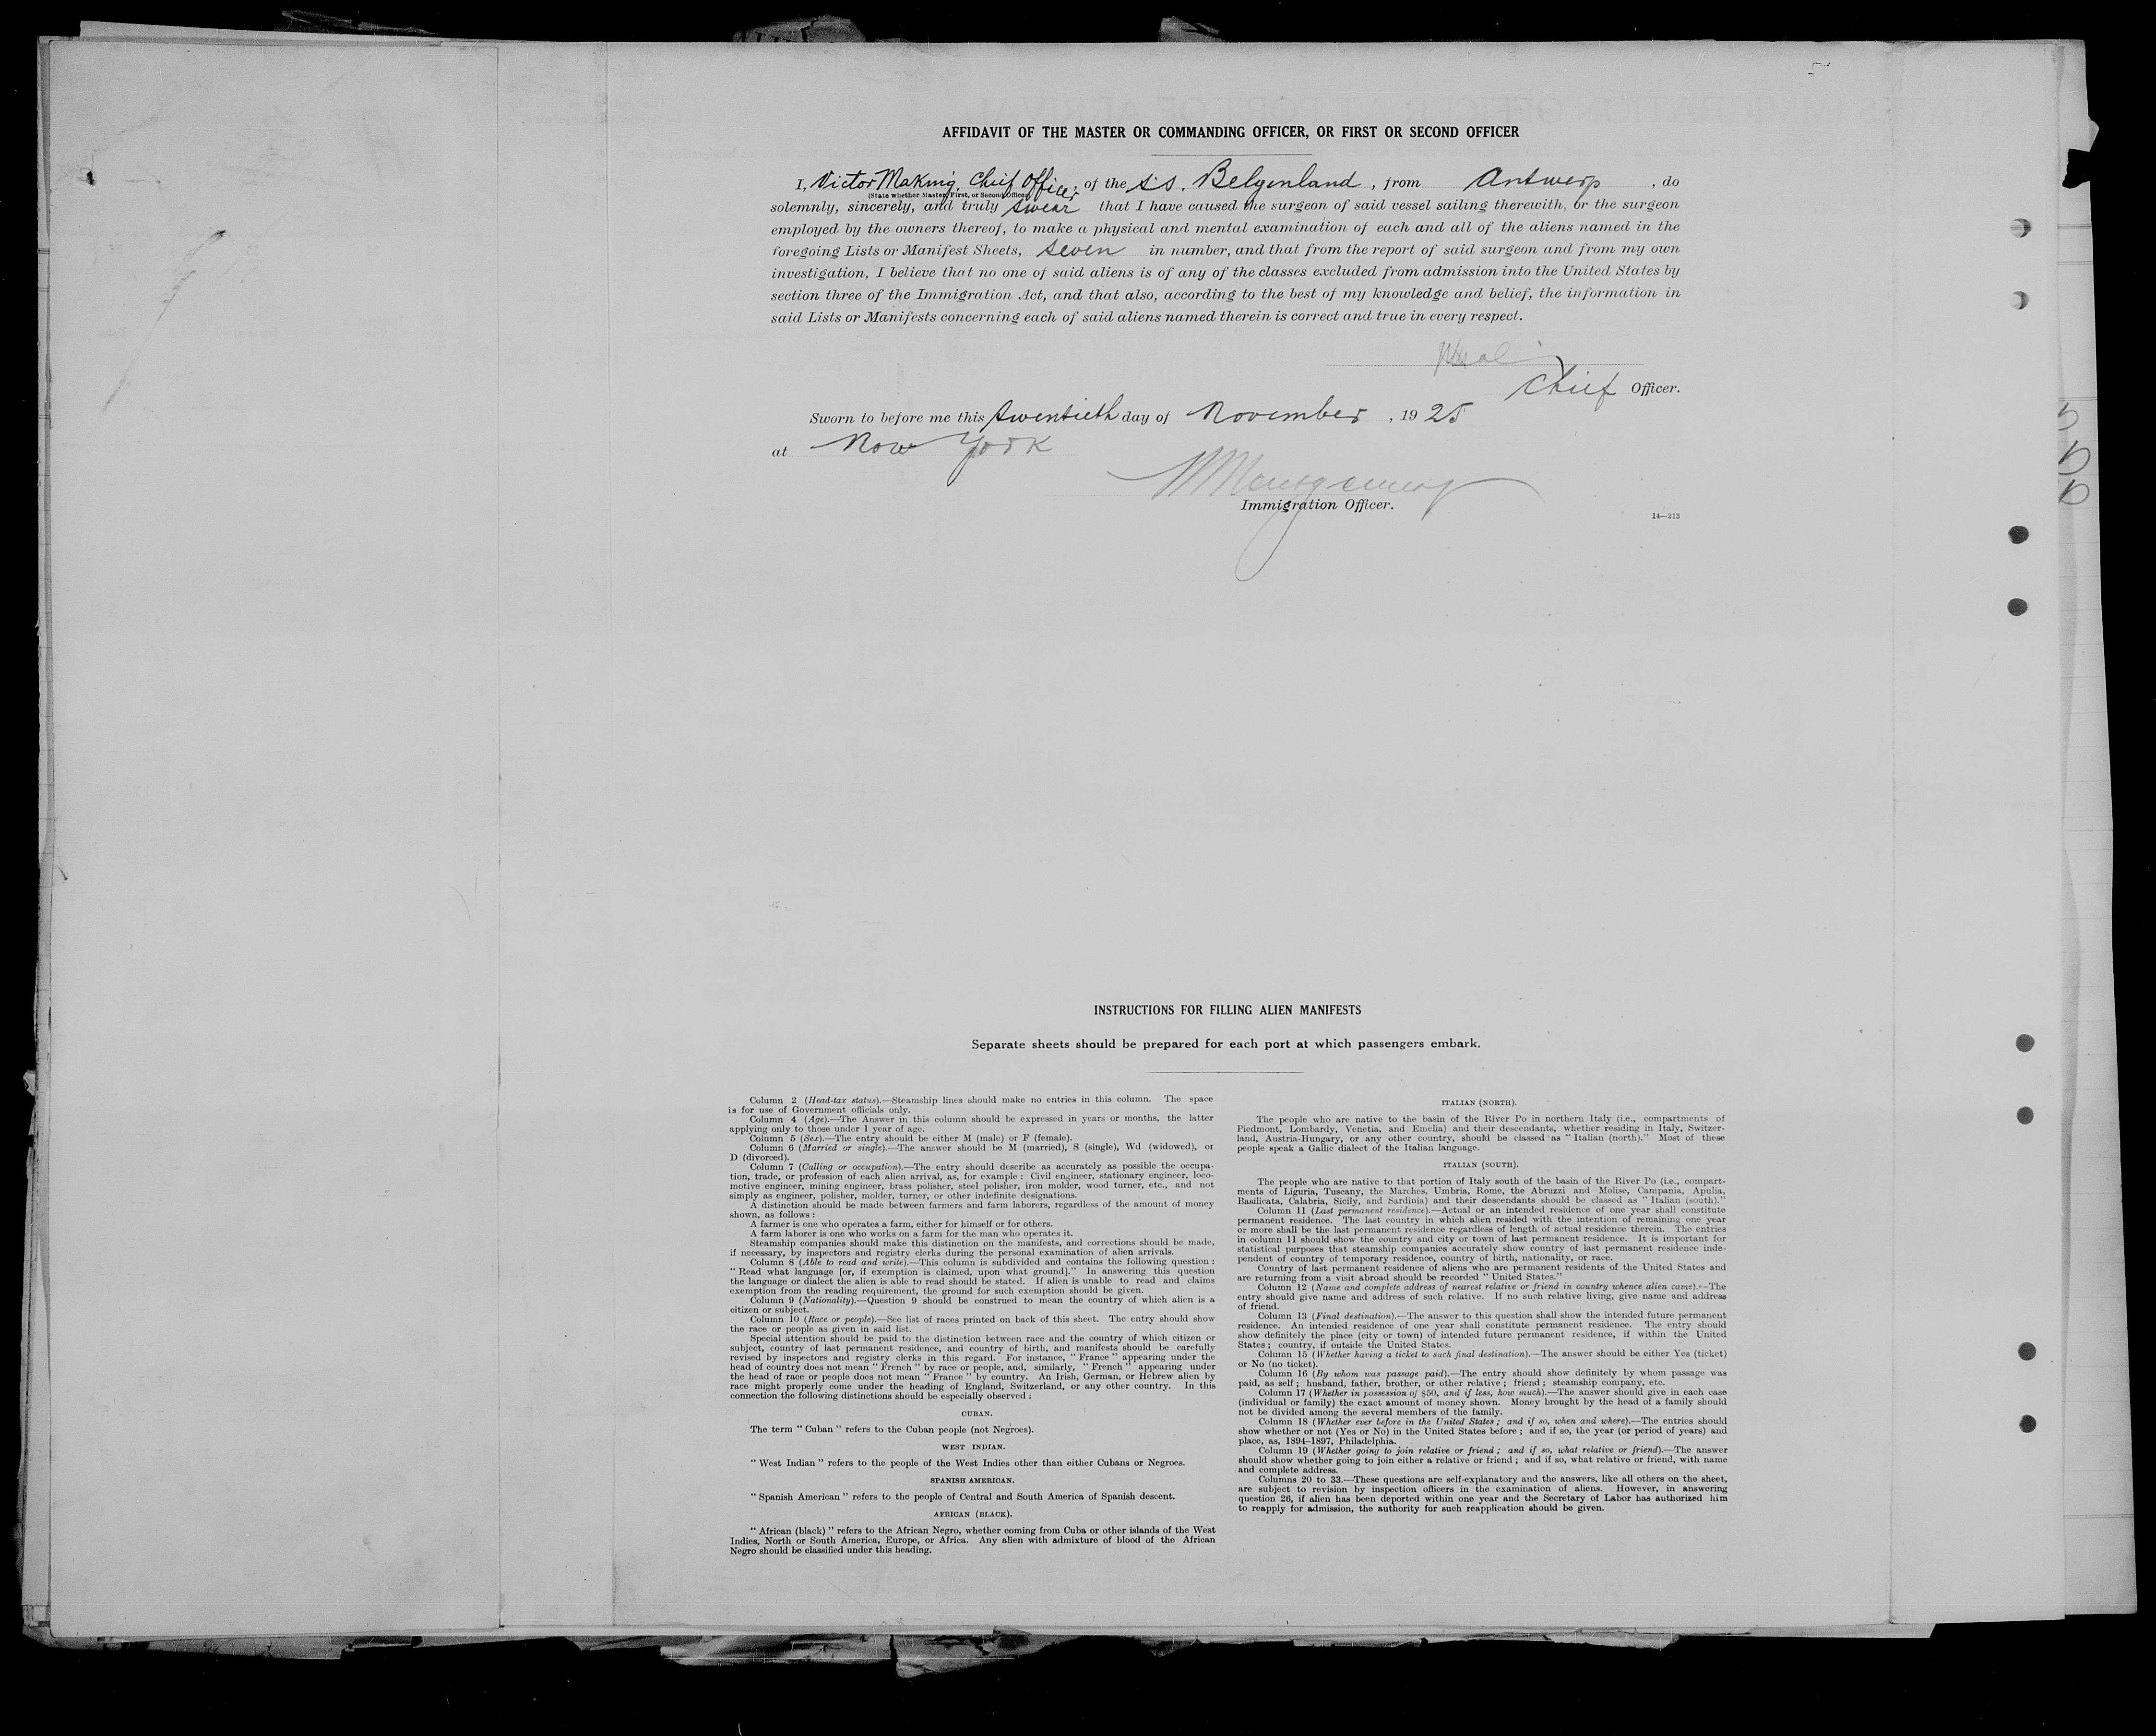 AFFIDAVIT OF THE MASTER OR COMMANDING OFFICER, OR FIRST OR SECOND OFFICER
I, Victor Making, Chief Officer, of the S.S. Belgenland, from Antwerp, do
(State whether Master, First, or Second Officer)
solemnly, sincerely, and truly swear that I have caused the surgeon of said vessel sailing therewith, or the surgeon
employed by the owners thereof, to make a physical and mental examination of each and all of the aliens named in the
foregoing Lists or Manifest Sheets, seven in number, and that from the report of said surgeon and from my own
investigation, I believe that no one of said aliens is of any of the classes excluded from admission into the United States by
section three of the Immigration Act, and that also, according to the best of my knowledge and belief, the information in
said Lists or Manifests concerning each of said aliens named therein is correct and true in every respect.
Chief Officer.
Sworn to before me this twentieth day of November, 1925
at New York
Immigration Officer.
14—213
INSTRUCTIONS FOR FILLING ALIEN MANIFESTS
Separate sheets should be prepared for each port at which passengers embark.
Column 2 (Head-tax status).—Steamship lines should make no entries in this column. The space
is for use of Government officials only.
Column 4 (Age).—The Answer in this column should be expressed in years or months, the latter
applying only to those under 1 year of age.
Column 5 (Sex).—The entry should be either M (male) or F (female).
Column 6 (Married or single).—The answer should be M (married), S (single), Wd (widowed), or
D (divorced).
Column 7 (Calling or occupation).—The entry should describe as accurately as possible the occupa-
tion, trade, or profession of each alien arrival, as, for example: Civil engineer, stationary engineer, loco-
motive engineer, mining engineer, brass polisher, steel polisher, iron molder, wood turner, etc., and not
simply as engineer, polisher, molder, turner, or other indefinite designations.
A distinction should be made between farmers and farm laborers, regardless of the amount of money
shown, as follows:
A farmer is one who operates a farm, either for himself or for others.
A farm laborer is one who works on a farm for the man who operates it.
Steamship companies should make this distinction on the manifests, and corrections should be made,
if necessary, by inspectors and registry clerks during the personal examination of alien arrivals.
Column 8 (Able to read and write).—This column is subdivided and contains the following question:
"Read what language [or, if exemption is claimed, upon what ground]." In answering this question
the language or dialect the alien is able to read should be stated. If alien is unable to read and claims
exemption from the reading requirement, the ground for such exemption should be given.
Column 9 (Nationality).—Question 9 should be construed to mean the country of which alien is a
citizen or subject.
Column 10 (Race or people).—See list of races printed on back of this sheet. The entry should show
the race or people as given in said list.
Special attention should be paid to the distinction between race and the country of which citizen or
subject, country of last permanent residence, and country of birth, and manifests should be carefully
revised by inspectors and registry clerks in this regard. For instance, "France" appearing under the
head of country does not mean "French" by race or people, and, similarly, "French" appearing under
the head of race or people does not mean "France" by country. An Irish, German, or Hebrew alien by
race might properly come under the heading of England, Switzerland, or any other country. In this
connection the following distinctions should be especially observed:
CUBAN.
The term "Cuban" refers to the Cuban people (not Negroes).
WEST INDIAN.
"West Indian" refers to the people of the West Indies other than either Cubans or Negroes.
SPANISH AMERICAN.
"Spanish American" refers to the people of Central and South America of Spanish descent.
AFRICAN (BLACK).
"African (black)" refers to the African Negro, whether coming from Cuba or other islands of the West
Indies, North or South America, Europe, or Africa. Any alien with admixture of blood of the African
Negro should be classified under this heading.
ITALIAN (NORTH).
The people who are native to the basin of the River Po in northern Italy (i.e., compartments of
Piedmont, Lombardy, Venetia, and Emelia) and their descendants, whether residing in Italy, Switzer-
land, Austria-Hungary, or any other country, should be classed as "Italian (north)." Most of these
people speak a Gallic dialect of the Italian language.
ITALIAN (SOUTH).
The people who are native to that portion of Italy south of the basin of the River Po (i.e., compart-
ments of Liguria, Tuscany, the Marches, Umbria, Rome, the Abruzzi and Molise, Campania, Apulia,
Basilicata, Calabria, Sicily, and Sardinia) and their descendants should be classed as "Italian (south)."
Column 11 (Last permanent residence).—Actual or an intended residence of one year shall constitute
permanent residence. The last country in which alien resided with the intention of remaining one year
or more shall be the last permanent residence regardless of length of actual residence therein. The entries
in column 11 should show the country and city or town of last permanent residence. It is important for
statistical purposes that steamship companies accurately show country of last permanent residence inde-
pendent of country of temporary residence, country of birth, nationality, or race.
Country of last permanent residence of aliens who are permanent residents of the United States and
are returning from a visit abroad should be recorded "United States."
Column 12 (Name and complete address of nearest relative or friend in country whence alien came).—The
entry should give name and address of such relative. If no such relative living, give name and address
of friend.
Column 13 (Final destination).—The answer to this question shall show the intended future permanent
residence. An intended residence of one year shall constitute permanent residence. The entry should
show definitely the place (city or town) of intended future permanent residence, if within the United
States; country, if outside the United States.
Column 15 (Whether having a ticket to such final destination).—The answer should be either Yes (ticket)
or No (no ticket).
Column 16 (By whom was passage paid).—The entry should show definitely by whom passage was
paid, as self; husband, father, brother, or other relative; friend; steamship company, etc.
Column 17 (Whether in possession of $50, and if less, how much).—The answer should give in each case
(individual or family) the exact amount of money shown. Money brought by the head of a family should
not be divided among the several members of the family.
Column 18 (Whether ever before in the United States; and if so, when and where).—The entries should
show whether or not (Yes or No) in the United States before; and if so, the year (or period of years) and
place, as, 1894–1897, Philadelphia.
Column 19 (Whether going to join relative or friend; and if so, what relative or friend).—The answer
should show whether going to join either a relative or friend; and if so, what relative or friend, with name
and complete address.
Columns 20 to 33.—These questions are self-explanatory and the answers, like all others on the sheet,
are subject to revision by inspection officers in the examination of aliens. However, in answering
question 26, if alien has been deported within one year and the Secretary of Labor has authorized him
to reapply for admission, the authority for such reapplication should be given.